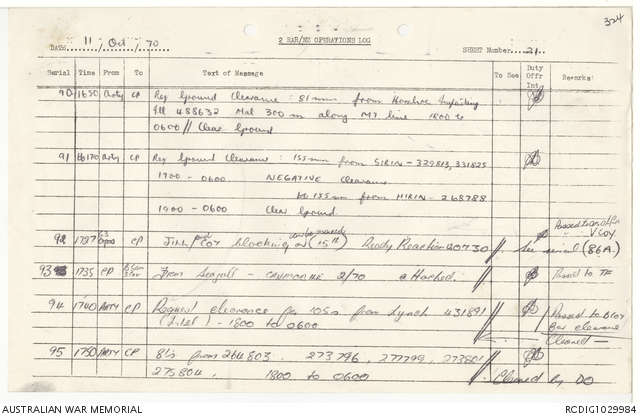 324
DATE: 11 / Oct / 70
2 RAR/NZ OPERATIONS LOG
SHEET Number 21
Serial Time From To Text of Message To See Duty Offr Int. Remarks
90 1630 Arty CP Req Ground Clearance: 81mm from Horshoe
488632 Mat 300 m along MT line 1800 to
0600 // Clear Ground
91 Arty CP Req Ground Clearance: 155mm from SIRIN - 329813, 331825
1900 - 0600 NEGATIVE Clearance
155mm from HIRIN - 268788
1900 - 0600 Clear Ground.
92 1737 CP Coy blocking (15th) Ready Reaction 0730
V COY
See serial (86A)
93 1735 CP From Seagull - CAYMARINE 2/70 attached.
Passed to TF
94 1740 ARTY CP Request clearance for 105s from Lynch 431891
- 1800 to 0600.
Passed to D Coy
clearance
Cleared -
95 1750 ARTY CP 8's from 264803. 273796, 277799, 273801
275804. 1800 to 0600
Cleared by DO
AUSTRALIAN WAR MEMORIAL
RCDIG1029984